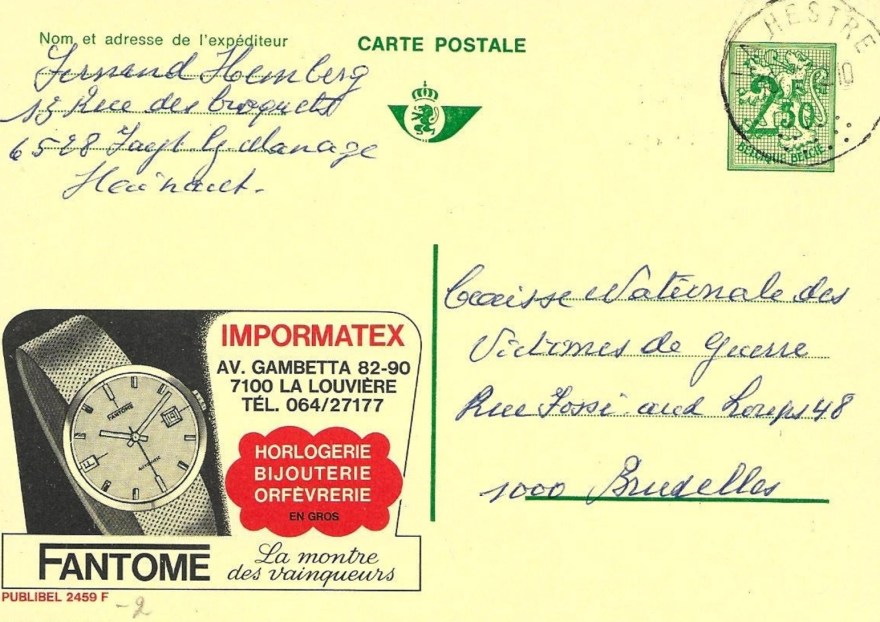 Nom et adresse de l'expéditeur
Fernand Hemberg
13 Rue des
6528 Manage
Hainaut.
CARTE POSTALE
HESTRE
2F50
BELGIQUE BELGIE
Caisse Nationale des
Victimes de Guerre
Rue aux Loups 48
1000 Bruxelles
IMPORMATEX
AV. GAMBETTA 82-90
7100 LA LOUVIÈRE
TÉL. 064/27177
HORLOGERIE
BIJOUTERIE
ORFÈVRERIE
EN GROS
FANTOME
AUTOMATIC
FANTOME
La montre
des vainqueurs
PUBLIBEL 2459 F
-2